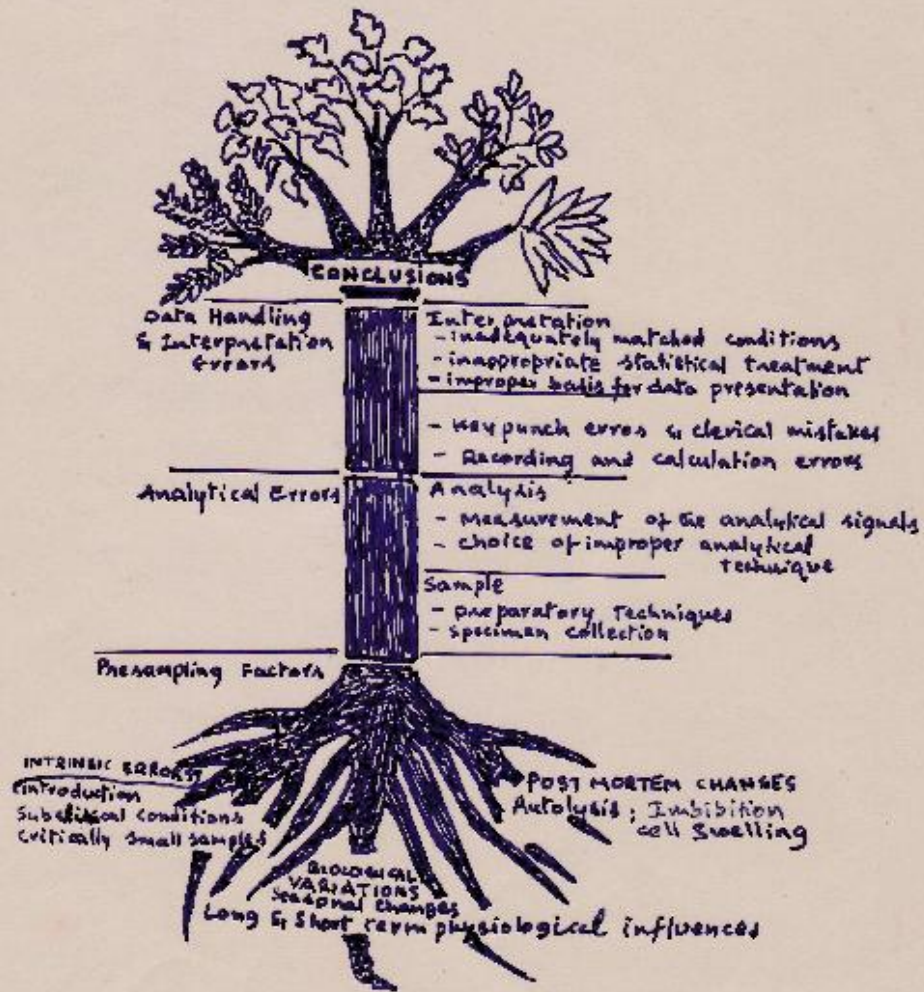 CONCLUSIONS
Data Handling
& Interpretation
Errors
Interpretation
- inadequately matched conditions
- inappropriate statistical treatment
- improper basis for data presentation
- Key punch erros & clerical mistakes
- Recording and calculation errors
Analytical Errors
Analysis
- Measurement of the analytical signals
- choice of improper analytical
technique
Sample
- preparatory techniques
- specimen collection
Presampling Factors
INTRINSIC ERRORS
introduction
Subclinical conditions
Critically small samples
POST MORTEM CHANGES
Autolysis; Imbibition
cell Swelling
BIOLOGICAL
VARIATIONS
Seasonal changes
Long & Short term physiological influences